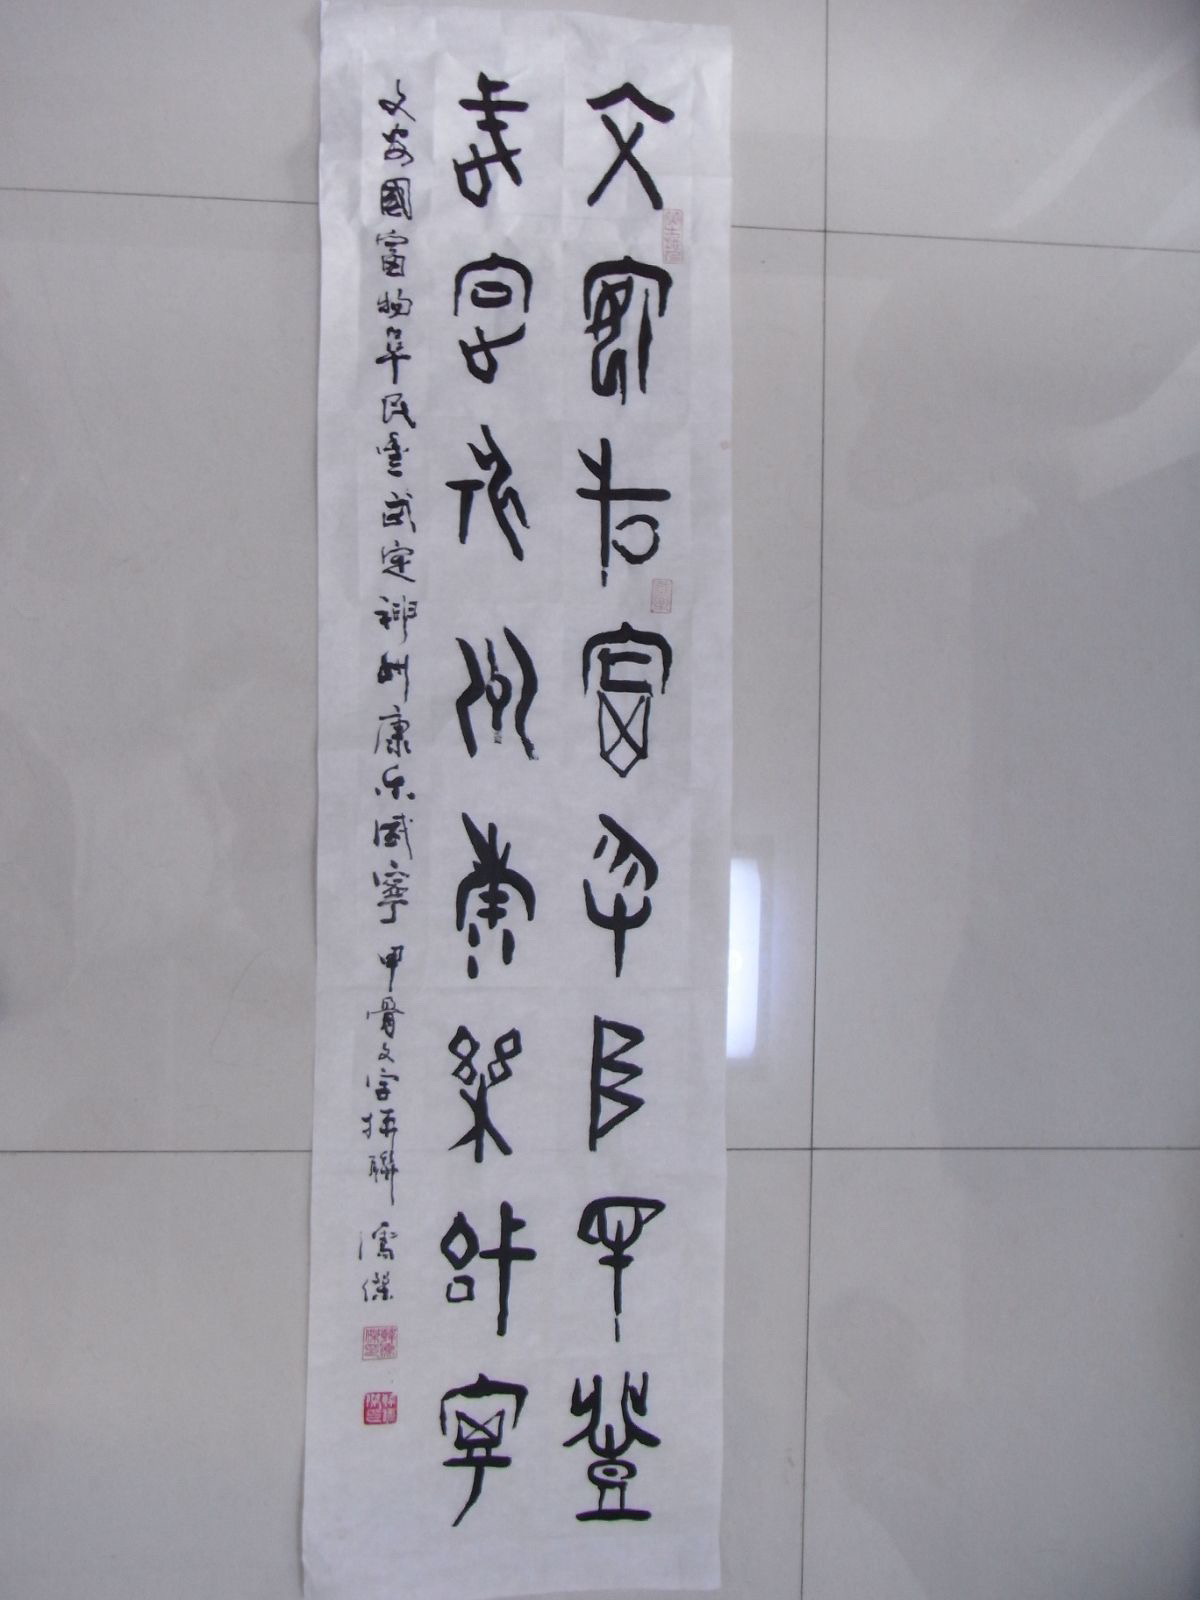 文安國富物阜民豐
武定神州康樂咸寧
文安國富物阜民豐武定神州康乐咸寧 甲骨文字拼聯 儒傑